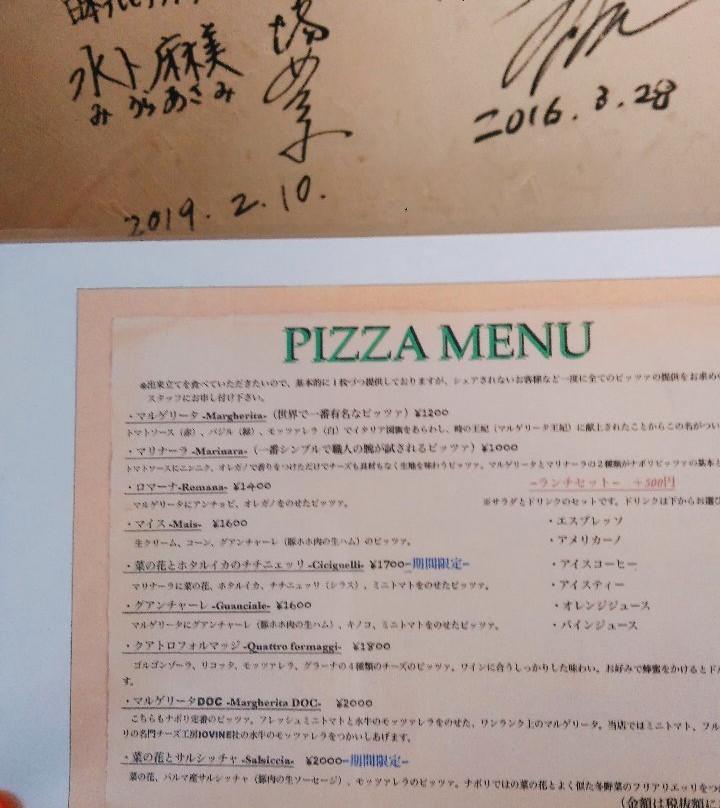 水卜麻美
みうらあさみ
2019.2.10.
2016.3.28
PIZZA MENU
※出来立てを食べていただきたいので、基本的に1枚づつ提供しておりますが、シェアされないお客様など一度に全てのピッツァの提供をお求め
スタッフにお申し付け下さい。
・マルゲリータ -Margherita-（世界で一番有名なピッツァ）¥1200
トマトソース（赤）、バジル（緑）、モッツァレラ（白）でイタリア国旗をあらわし、時の王妃（マルゲリータ王妃）に献上されたことからこの名がつい
・マリナーラ -Marinara-（一番シンプルで職人の腕が試されるピッツァ）¥1000
トマトソースにニンニク、オレガノで香りをつけただけでチーズも具材もなく生地を味わうピッツァ。マルゲリータとマリナーラの2種類がナポリピッツァの基本と
・ロマーナ-Romana- ¥1400
マルゲリータにアンチョビ、オレガノをのせたピッツァ。
-ランチセット- +500円
※サラダとドリンクのセットです。ドリンクは下からお選び
・マイス -Mais- ¥1600
生クリーム、コーン、グアンチャーレ（豚ホホ肉の生ハム）のピッツァ。
・エスプレッソ
・アメリカーノ
・アイスコーヒー
・アイスティー
・オレンジジュース
・パインジュース
・菜の花とホタルイカのチチニェッリ -Cicignelli- ¥1700-期間限定-
マリナーラに菜の花、ホタルイカ、チチニェッリ（シラス）、ミニトマトをのせたピッツァ。
・グアンチャーレ -Guanciale- ¥1600
マルゲリータにグアンチャーレ（豚ホホ肉の生ハム）、キノコ、ミニトマトをのせたピッツァ。
・クアトロフォルマッジ -Quattro formaggi- ¥1800
ゴルゴンゾーラ、リコッタ、モッツァレラ、グラーナの4種類のチーズのピッツァ。ワインに合うしっかりした味わい。お好みで蜂蜜をかけると
す。
・マルゲリータDOC -Margherita DOC- ¥2000
こちらもナポリ定番のピッツァ。フレッシュミニトマトと水牛のモッツァレラをのせた、ワンランク上のマルゲリータ。当店ではミニトマト、フル
リの名門チーズ工房IOVINE社の水牛のモッツァレラをつかいしあげます。
・菜の花とサルシッチャ -Salsiccia- ¥2000-期間限定-
菜の花、パルマ産サルシッチャ（豚肉の生ソーセージ）、モッツァレラのピッツァ。ナポリではの菜の花とよく似た冬野菜のフリアリエッリを
（金額は税抜額に